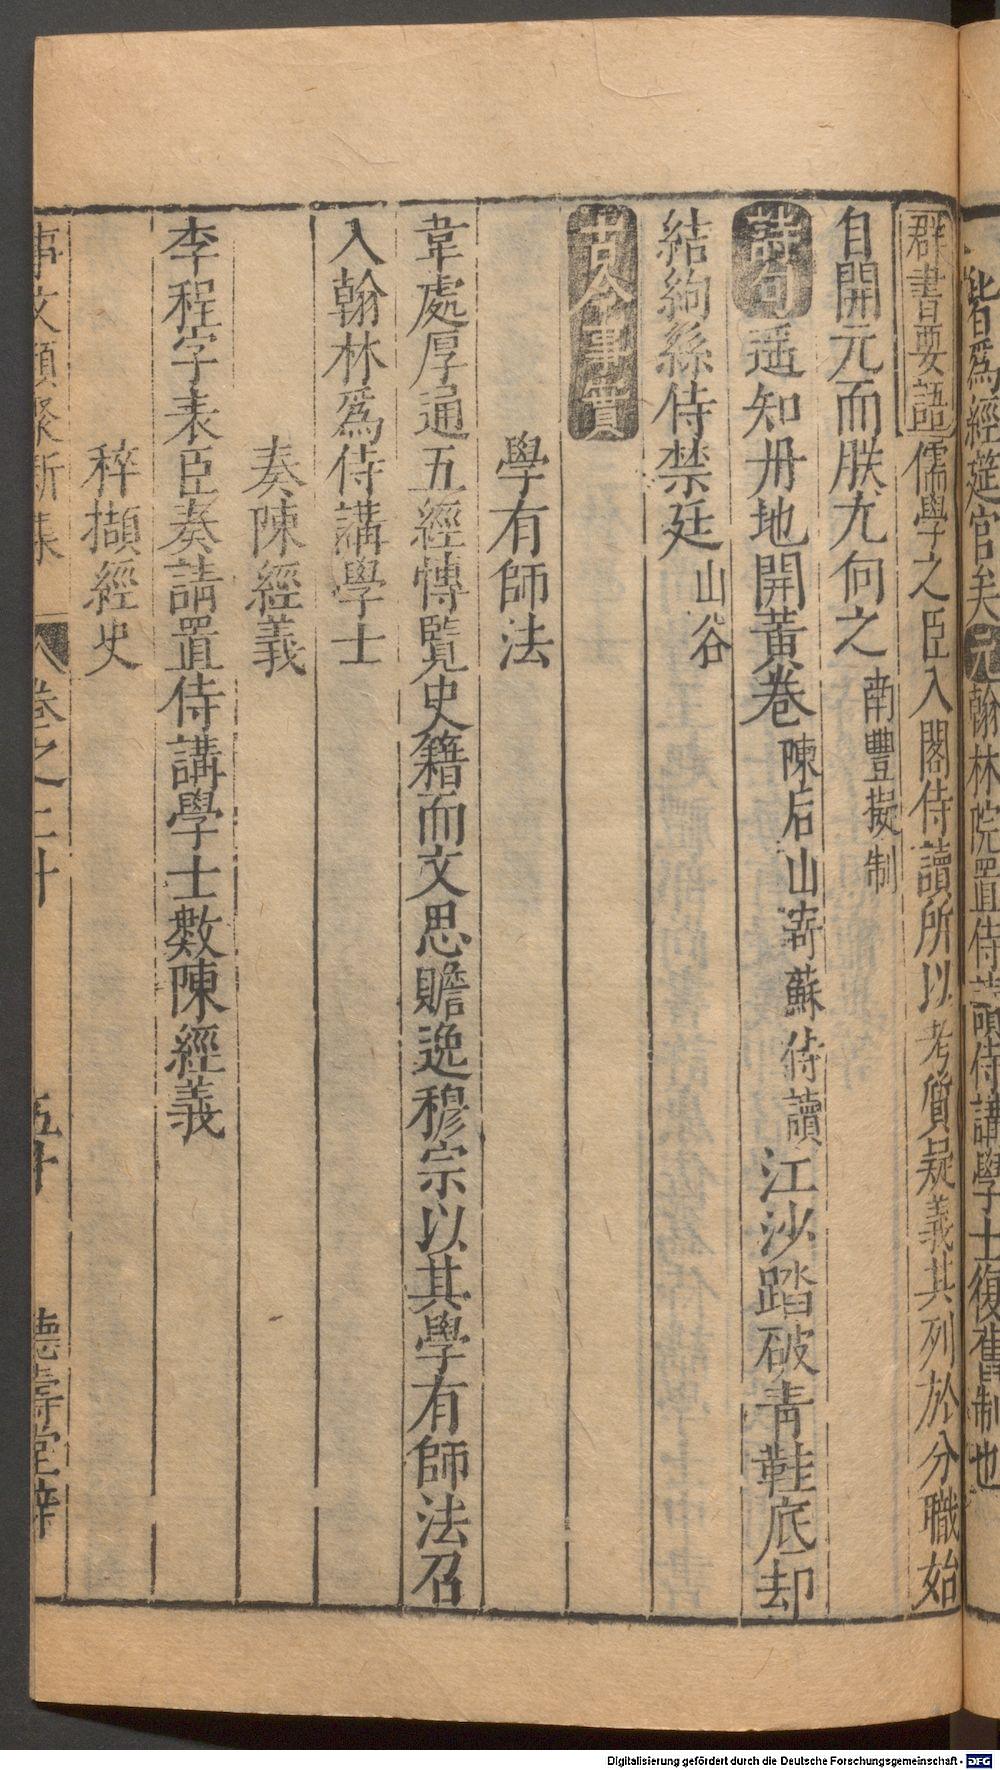 皆爲經筵官矣元翰林院置侍讀侍講學士復舊制也
群書要語儒學之臣入閣侍讀所以考質疑義其列於分職始
自開元而朕尤向之南豐擬制
詩句遥知册地開黃卷陳后山寄蘇侍讀江沙踏破青鞋底却
結絢絲侍禁廷山谷
古今事實
學有師法
韋處厚通五經慱覽史籍而文思贍逸穆宗以其學有師法召
入翰林爲侍講學士
奏陳經義
李程字表臣奏請置侍講學士數陳經義
稡擷經史
事文類聚新集 卷之二十 五十 德壽堂梓
Digitalisierung gefördert durch die Deutsche Forschungsgemeinschaft - DFG